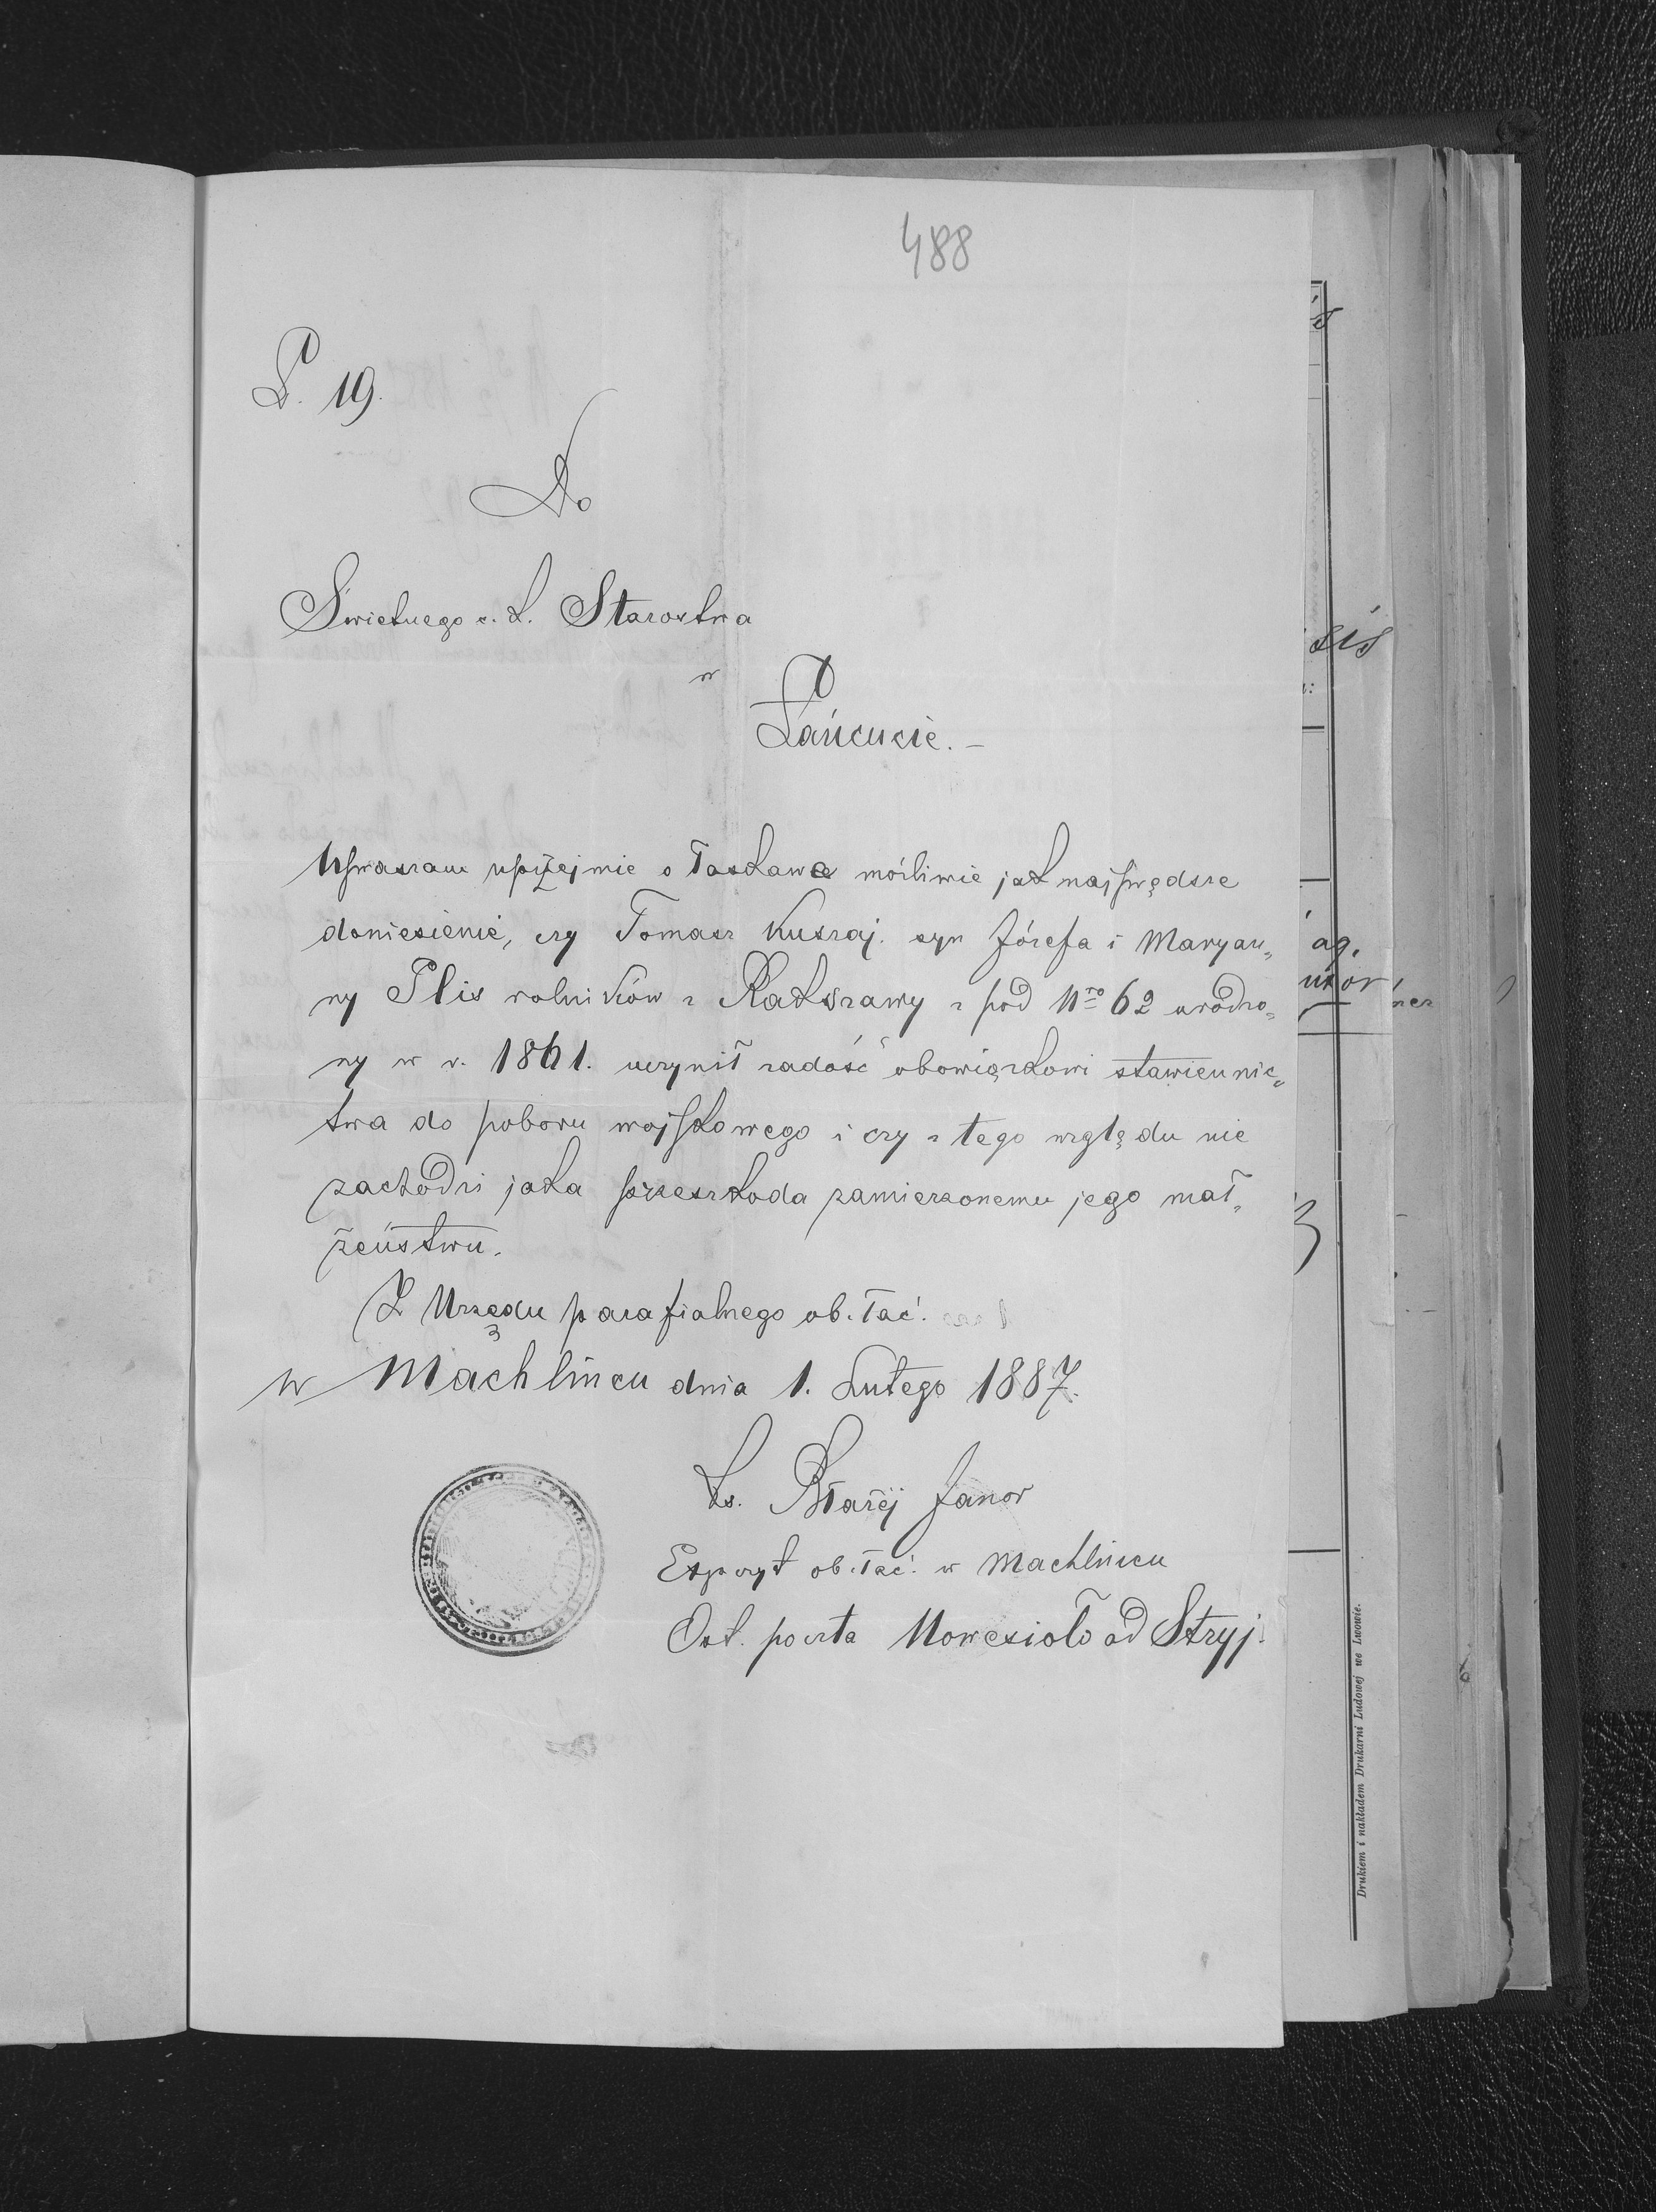 488
L. 19.
Do
Świetnego c. k. Starostwa
w
Łańcucie. –
Upraszam uprzejmie o łaskawe możliwie jak najprędsze
doniesienie, czy Tomasz Kuszaj. syn Józefa i Maryan„
ny Plis rolników z Rakszawy z pod Nro 62 urodzo„
ny w r. 1861. uczynił zadość obowiązkowi stawiennic„
twa do poboru wojskowego i czy z tego względu nie
zachodzi jaka przeszkoda zamierzonemu jego mał„
żeństwu.
Z Urzędu parafialnego ob. łać.
w Machlińcu dnia 1. Lutego 1887.
Ks. Błażej Janor
Expozyt ob. łać. w Machlińcu
Ost. poczta Nowesioło ad Stryj.
sis
ag.
Drukiem i nakładem Drukarni Ludowej we Lwowie.